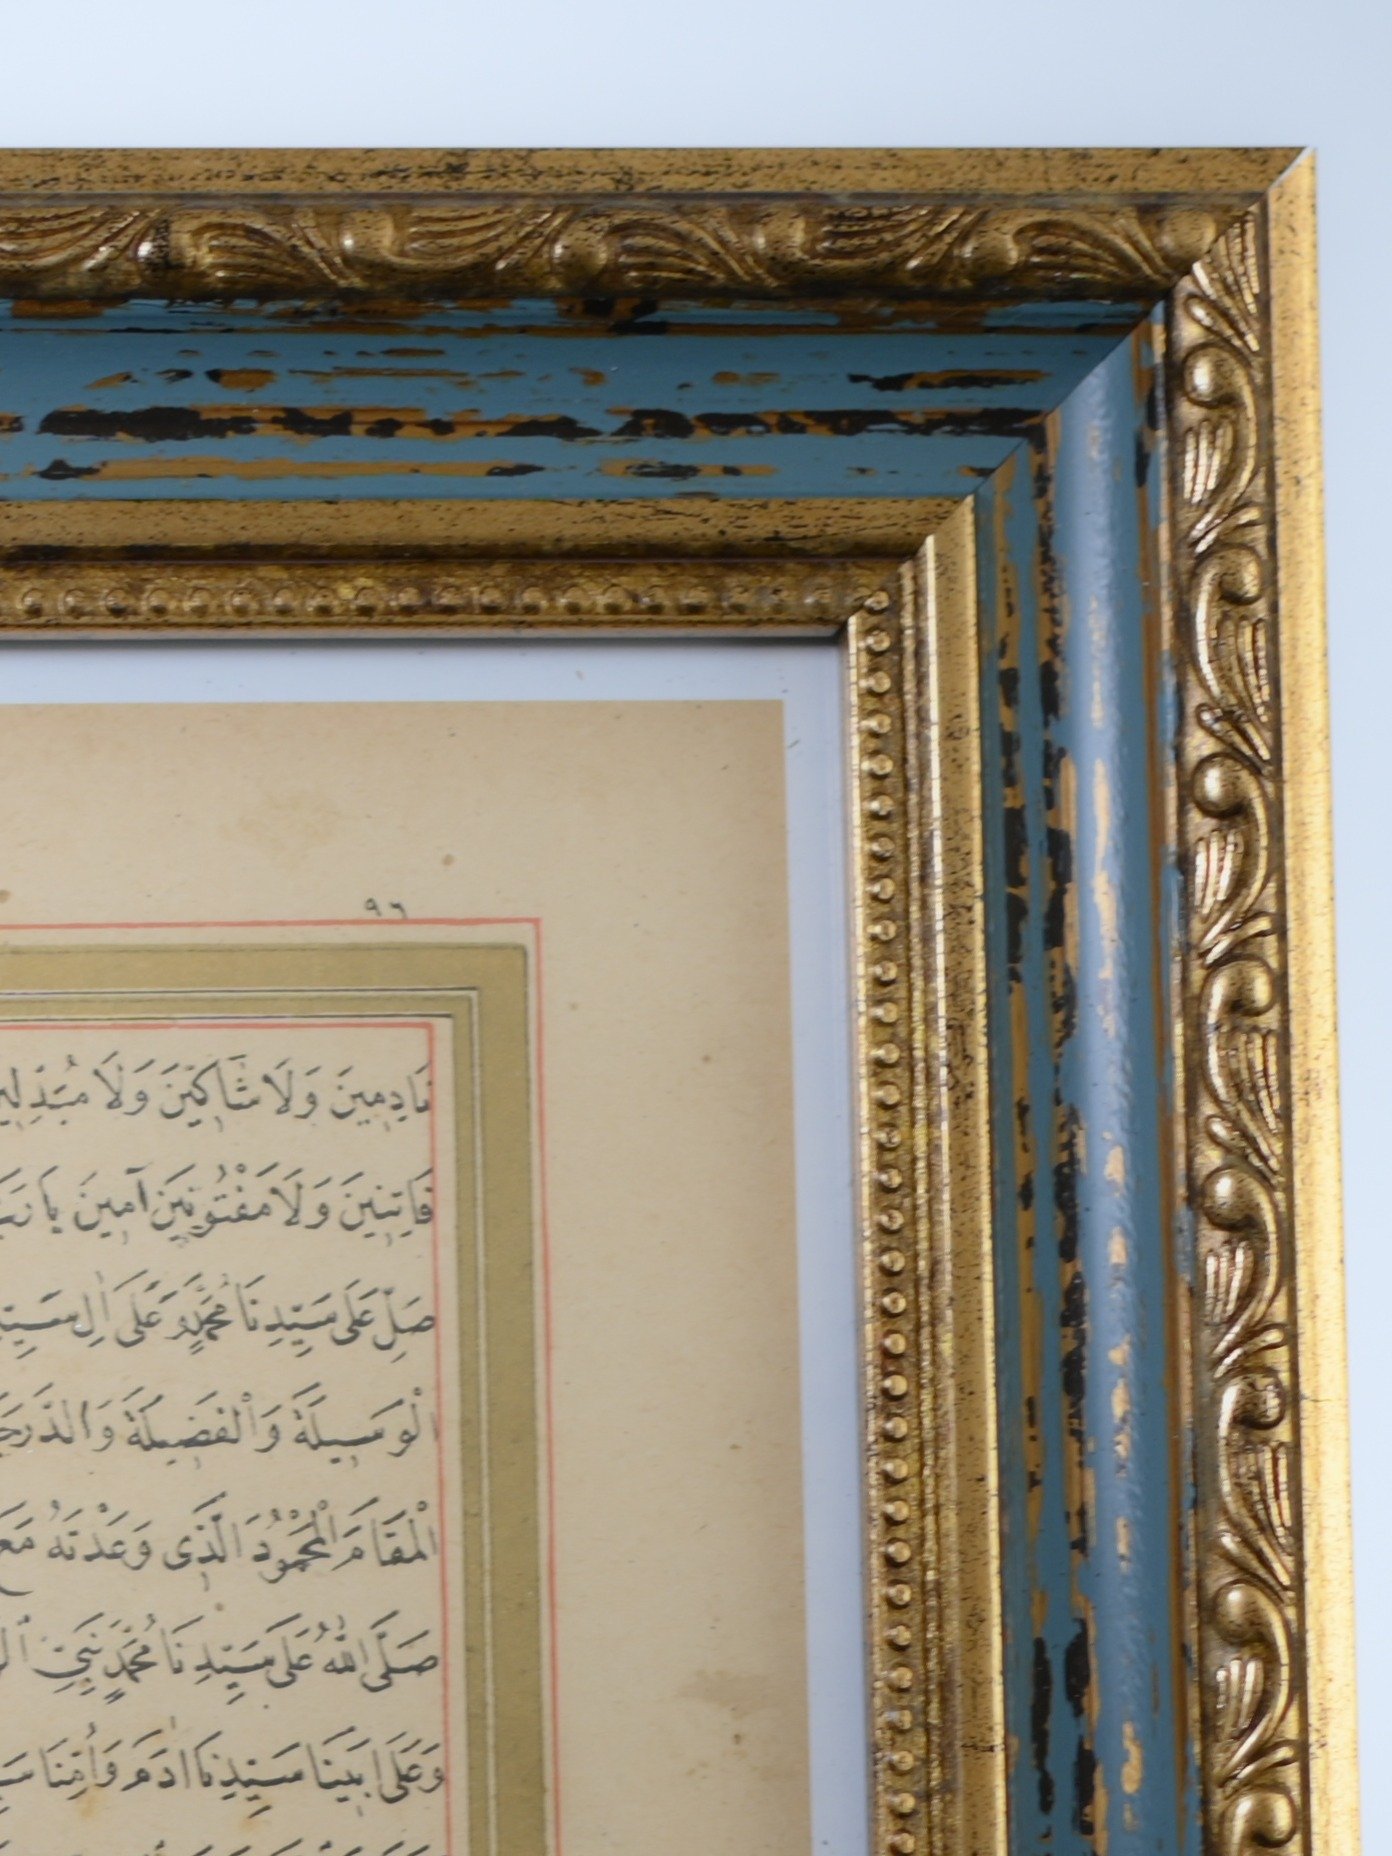 ٩٦
نَادِمِينَ وَلَا شَاكِّينَ وَلَا مُبَدِّلِينَ
فَاتِنِينَ وَلَا مَفْتُونِينَ آمِينَ يَا رَبَّ
صَلِّ عَلَى سَيِّدِنَا مُحَمَّدٍ وَعَلَى اٰلِ سَيِّدِ
الْوَسِيلَةَ وَالْفَضِيلَةَ وَالدَّرَجَةَ
الْمَقَامَ الْمَحْمُودَ الَّذِى وَعَدْتَهُ مَعَ
صَلَّى اللّٰهُ عَلَى سَيِّدِنَا مُحَمَّدٍ نَبِيِّ
وَعَلَى اَبِينَا سَيِّدِنَا اٰدَمَ وَأُمِّنَا